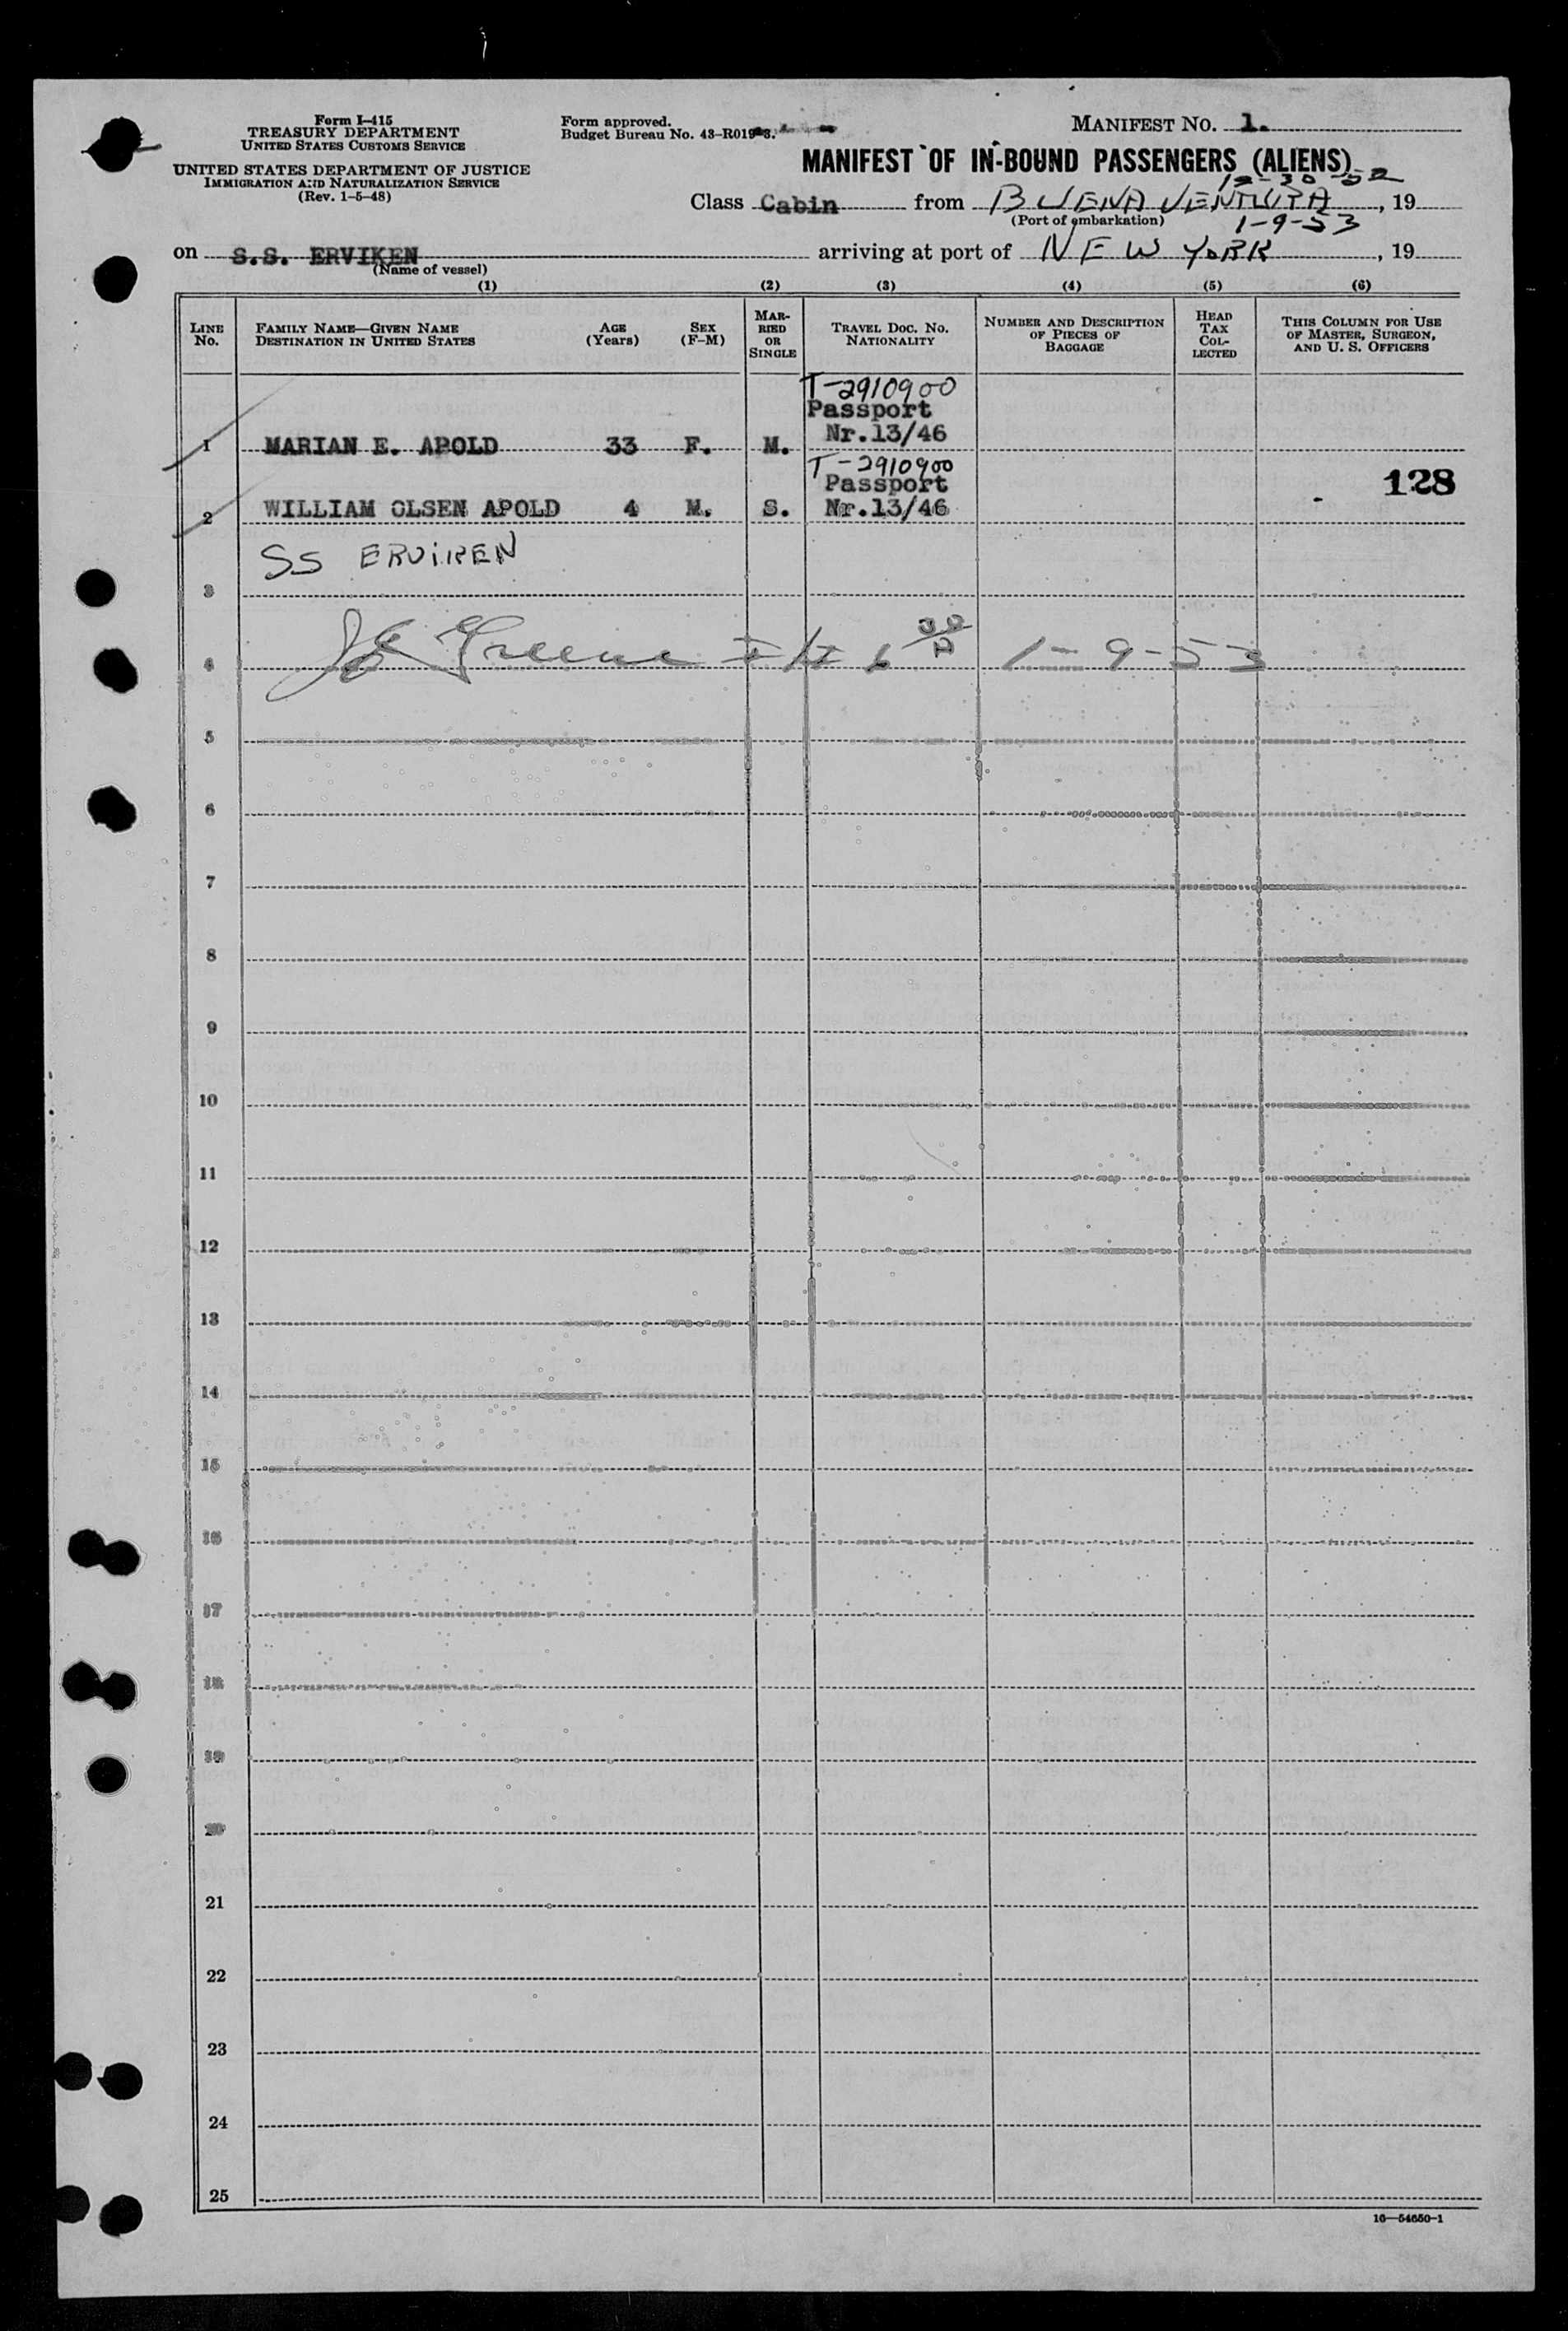 Form I-415
TREASURY DEPARTMENT
UNITED STATES CUSTOMS SERVICE
UNITED STATES DEPARTMENT OF JUSTICE
IMMIGRATION AND NATURALIZATION SERVICE
(Rev. 1-5-48)
Form approved.
Budget Bureau No. 43-R019-3.
MANIFEST NO. 1.
MANIFEST OF IN-BOUND PASSENGERS (ALIENS)
12-30-52
Class Cabin from BUENAVENTURA, 19
(Port of embarkation)
1-9-53
on S.S. ERVIKEN arriving at port of NEW YORK, 19
(Name of vessel)
(1) (2) (3) (4) (5) (6)
LINE No.
FAMILY NAME—GIVEN NAME
DESTINATION IN UNITED STATES
AGE (Years)
SEX (F-M)
MARRIED OR SINGLE
TRAVEL DOC. NO.
NATIONALITY
NUMBER AND DESCRIPTION OF PIECES OF BAGGAGE
HEAD TAX COLLECTED
THIS COLUMN FOR USE OF MASTER, SURGEON, AND U. S. OFFICERS
T-2910900
Passport
1 MARIAN E. APOLD 33 F. M. Nr.13/46
T-2910900
Passport
128
2 WILLIAM OLSEN APOLD 4 M. S. Nr.13/46
SS ERVIKEN
3
4 Greene 6 30 1-9-53
5
6
7
8
9
10
11
12
13
14
15
16
17
18
19
20
21
22
23
24
25
16—54650-1